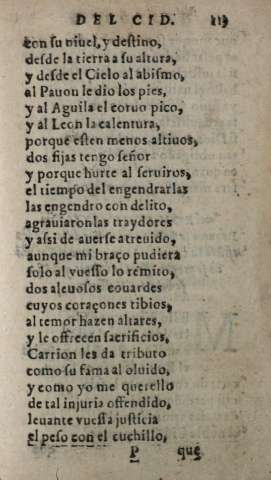 DEL CID. 113
con su niuel, y destino,
desde la tierra a su altura,
y desde el Cielo al abismo,
al Pauon le dio los pies,
y al Aguila el coruo pico,
y al Leon la calentura,
porque esten menos altiuos,
dos fijas tengo señor
y porque hurte al seruiros,
el tiempo del engendrarlas
las engendro con delito,
agrauiaronlas traydores
y assi de auerse atreuido,
aunque mi braço pudiera
solo al vuesso lo remito,
dos aleuosos couardes
cuyos coraçones tibios,
al temor hazen altares,
y le offrecen sacrificios,
Carrion les da tributo
como su fama al oluido,
y como yo me querello
de tal injuria offendido,
leuante vuessa justicia
el peso con el cuchillo,
P que